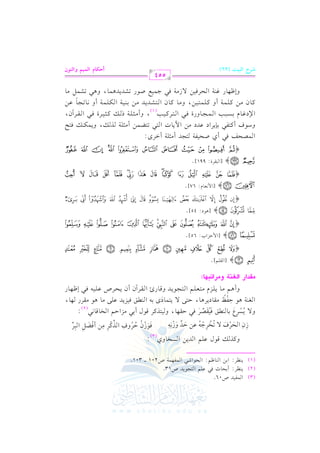 شرح البيت (٣٣)
أحكام الميم والنون
١٥٥
وإظهار غنة الحرفين لازمة في جميع صور تشديدهما، وهي تشمل ما
كان من كلمة أو كلمتين، وما كان التشديد من بنية الكلمة أو ناتجاً عن
الإدغام بسبب المجاورة في التركيب(١)، وأمثلة ذلك كثيرة في القرآن،
وسوف أكتفي بإيراد عدد من الآيات التي تتضمن أمثلة لذلك، ويمكنك فتح
المصحف في أي صحيفة لتجد أمثلة أخرى:
﴿ثُمَّ أَفِيضُوا۟ مِنْ حَيْثُ أَفَاضَ ٱلنَّاسُ وَٱسْتَغْفِرُوا۟ ٱللَّهَ إِنَّ ٱللَّهَ غَفُورٌ
رَّحِيمٌ﴾ [البقرة: ١٩٩].
﴿فَلَمَّا جَنَّ عَلَيْهِ ٱلَّيْلُ رَءَا كَوْكَبًا قَالَ هَٰذَا رَبِّى فَلَمَّآ أَفَلَ قَالَ لَآ أُحِبُّ
ٱلْـَٔافِلِينَ﴾ [الأنعام: ٧٦].
﴿إِن نَّقُولُ إِلَّا ٱعْتَرَىٰكَ بَعْضُ ءَالِهَتِنَا بِسُوٓءٍ قَالَ إِنِّىٓ أُشْهِدُ ٱللَّهَ وَٱشْهَدُوٓا۟ أَنِّى بَرِىٓءٌ
مِّمَّا تُشْرِكُونَ﴾ [هود: ٥٤].
﴿إِنَّ ٱللَّهَ وَمَلَٰٓئِكَتَهُۥ يُصَلُّونَ عَلَى ٱلنَّبِىِّ يَٰٓأَيُّهَا ٱلَّذِينَ ءَامَنُوا۟ صَلُّوا۟ عَلَيْهِ وَسَلِّمُوا۟
تَسْلِيمًا﴾ [الأحزاب: ٥٦].
﴿وَلَا تُطِعْ كُلَّ حَلَّافٍ مَّهِينٍ هَمَّازٍ مَّشَّآءٍ بِنَمِيمٍ مَّنَّاعٍ لِّلْخَيْرِ مُعْتَدٍ
أَثِيمٍ﴾ [القلم].
مقدار الغنة ومراتبها:
وأهم ما يلزم متعلم التجويد وقارئ القرآن أن يحرص عليه في إظهار
الغنة هو حِفْظُ مقاديرها، حتى لا يتمادى به النطق فيزيد على ما هو مقرر لها،
ولا يُسْرِعُ بالنطق فَيُقَصِّرَ في حقها، وليتذكر قول أبي مزاحم الخاقاني(٢):
زِنِ الحَرْفَ لا تُخْرِجْهُ عَنْ حَدِّ وَزْنِهِ فَوَزْنُ حُرُوفِ الذِّكْرِ مِنْ أَفْضَلِ البِرِّ
وكذلك قول علم الدين السخاوي(٣):
(١) ينظر: ابن الناظم: الحواشي المفهمة ص١٠٢ - ١٠٣.
(٢) ينظر: أبحاث في علم التجويد ص٣٩.
(٣) المفيد ص٦٠.